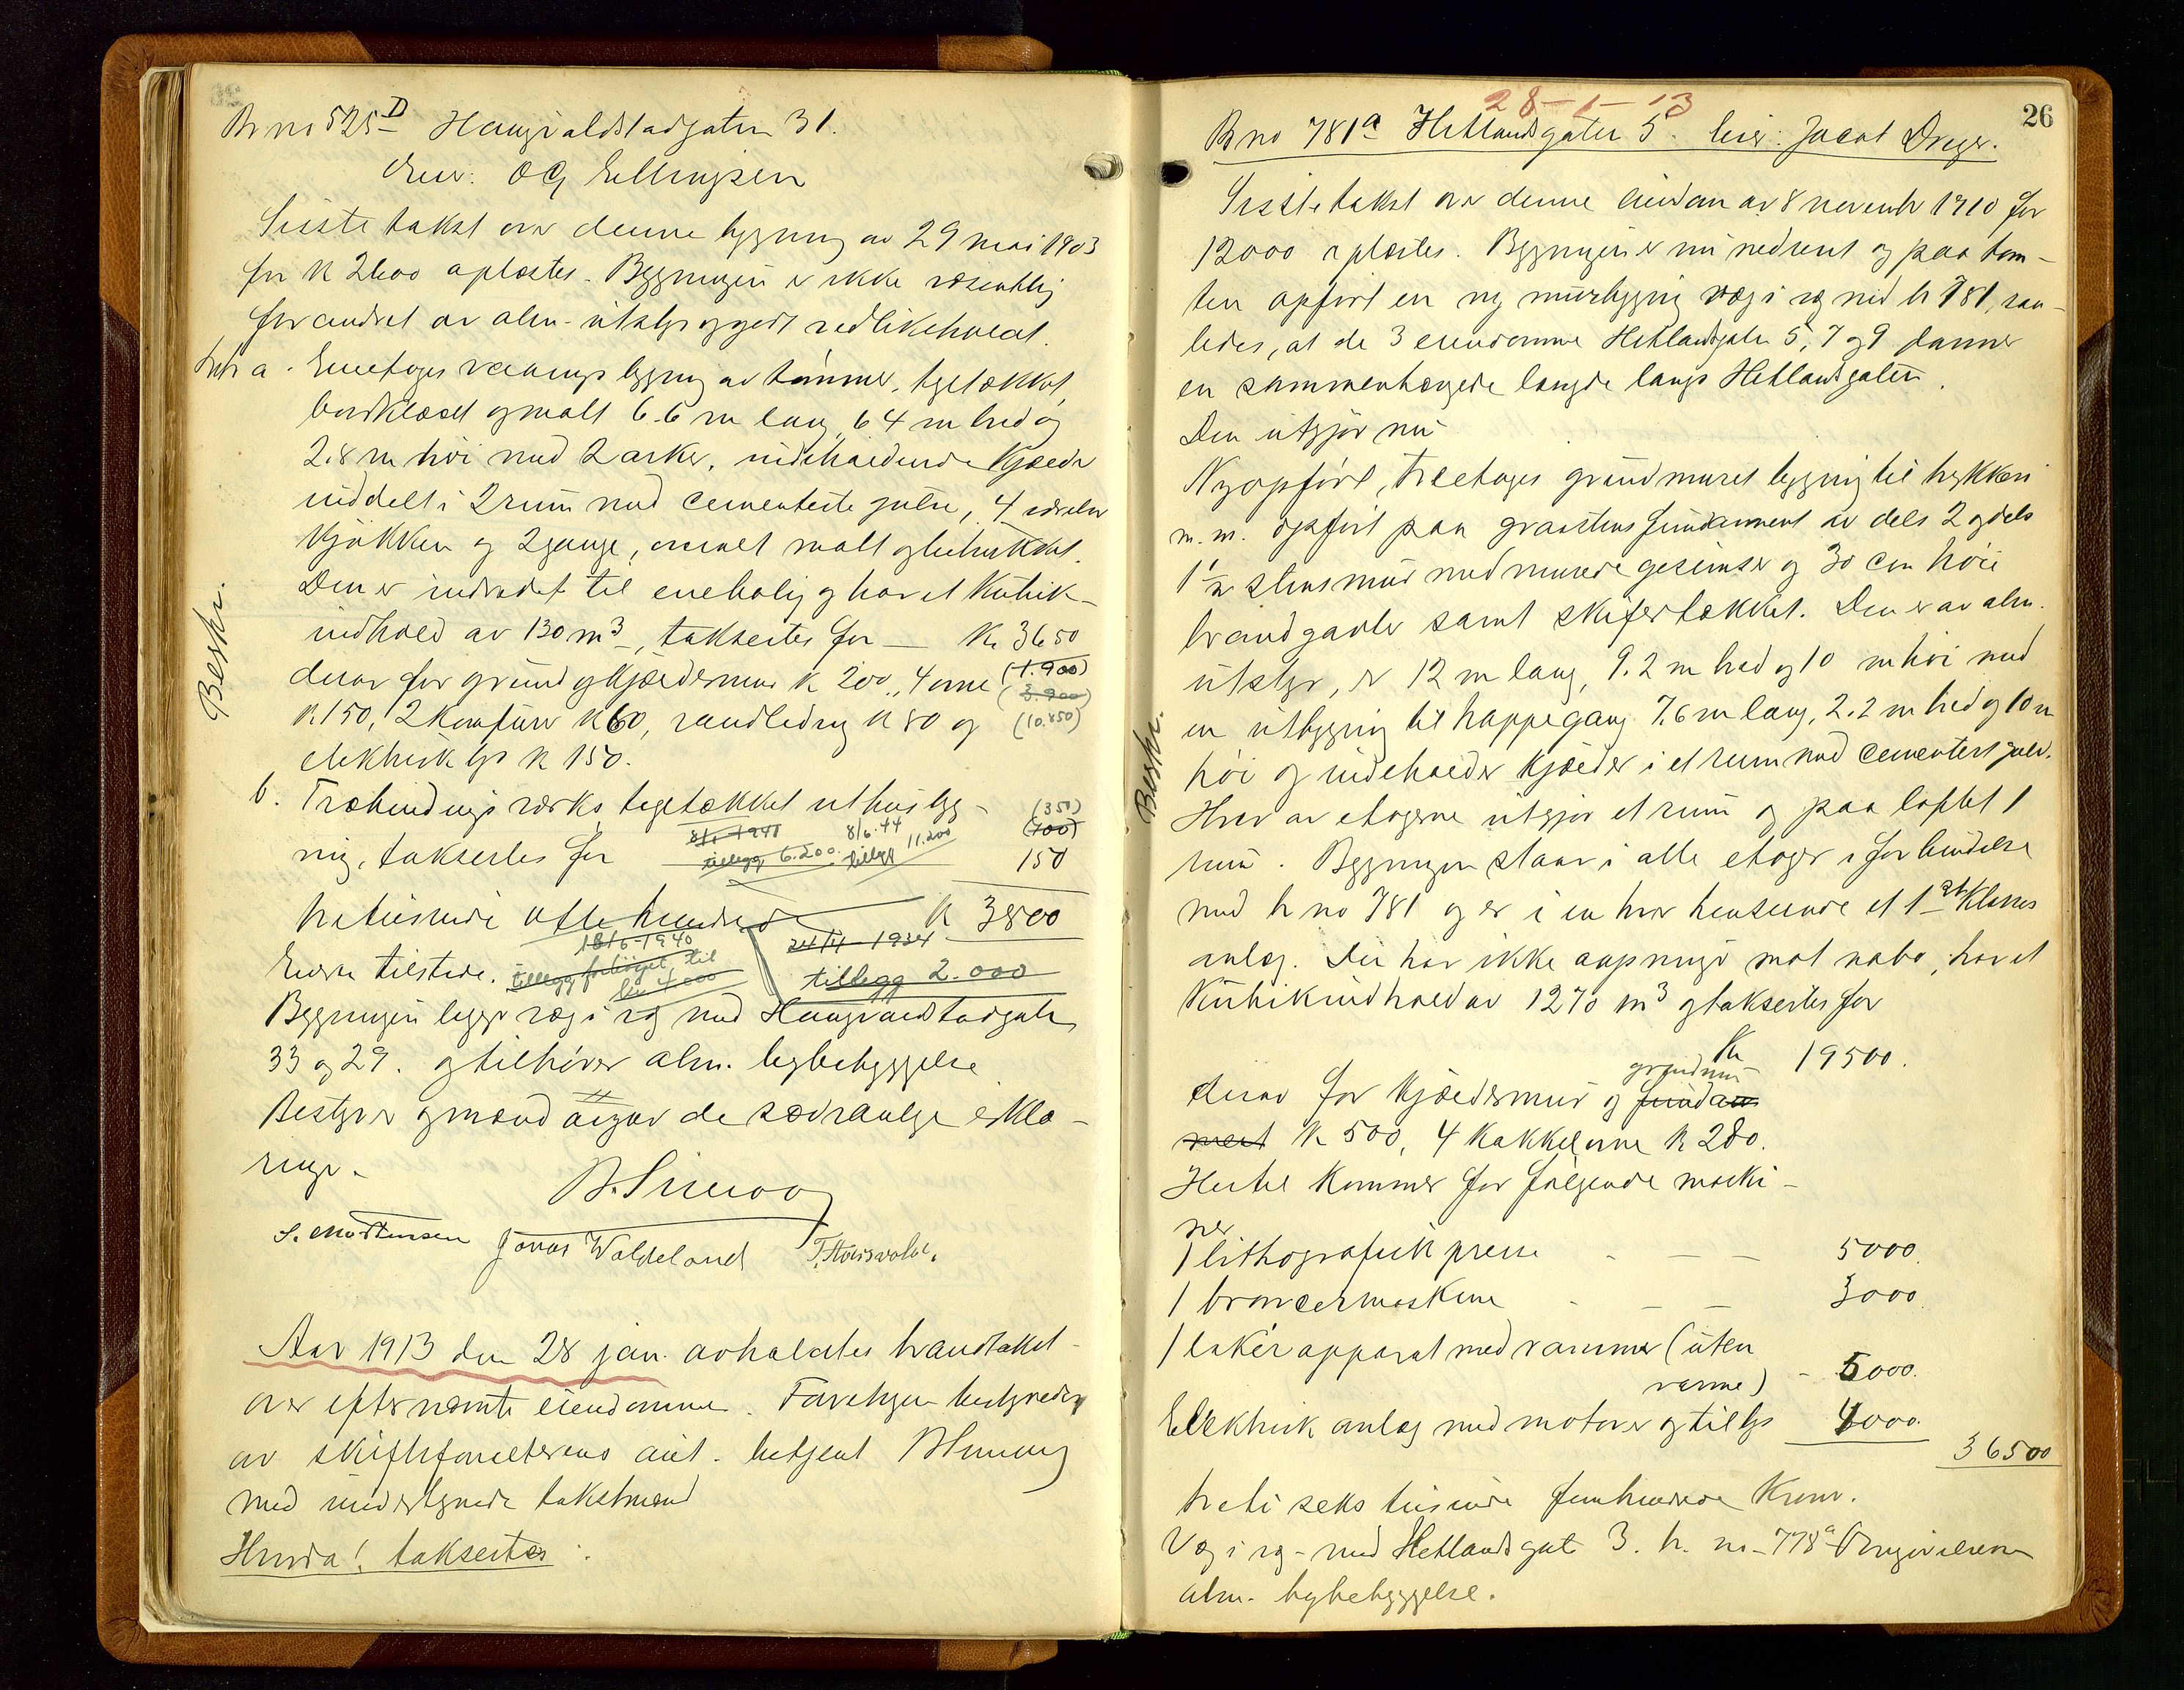 Br no 525 D Haugvaldstadgaten 31.
Eier: O G Ellingsen
Sidste takst over denne bygning av 29 mai 1903
for K 2600 oplæstes. Bygningen er ikke væsentlig
forandret av alm. utstyr og godt vedlikeholdt.
Litr a. Enetages vaanings bygning av tømmer, tegltækket,
bordklædt og malt 6.6 m lang, 6.4 m bred og
2.8 m høi med 2 arker, indeholdende kjælder
inddelt i 2 rum med cementerte gulve, 4 værelser
kjøkken og 2 gange, överalt malt og betrukket.
Den er indredet til enebolig og har et kubik-
indhold av 130 m3, taksertes for — Kr 3650
derav for grund og kjældermur K 200, 4 ovne (1.900)
(3.900)
K 150, 2 komfurer K 60, vandledning K 80 og (10.850)
elektrisk lys K 150.
b. Træbindings verks, tegltækket uthusbyg- (350)
(700)
ning, taksertes for 150
8/1-1940 tillegg 6.200. 8/6-44 tillegg 11.200
tretusinde otte hundrede K 3800
18/6-1940
24/11-1934
Eieren tilstede. tillegg forhøiet til
kr 4.000
tillegg 2.000
Bygningen ligger væg i væg med Haugvaldstadgaten
33 og 29. og tilhører alm. bybebyggelse
Bestyrer og mænd avgav de sædvanlige erklæ-
ringer.
B. Simony
S. Mortensen Jonas Waldeland T. Stousvold.
Aar 1913 den 28 jan. avholdtes brandtakst
over efternævnte eiendomme. Forretningen bestyredes
av skifteforvalterens aut. betjent B Simony
med undertegnede takstmænd
Hvorda! taksertes:
Beskr.
26
28-1-13
Br no 781a Hetlandsgaten 5. Eier: Jacob Dreyer.
Sidste takst over denne eiendom av 8 november 1910 for
12000 oplæstes. Bygningen er nu nedrevet og paa tom-
ten opført en ny murbygning væg i væg med br 781, saa-
ledes, at de 3 eiendomme Hetlandsgaten 5, 7 og 9 danner
en sammenhængende længde langs Hetlandsgaten.
Den utgjør nu
Nyopført, treetages grundmuret bygning til trykkeri
m. m. opført paa graastens fundament av dels 2 og dels
1 1/2 stens mur med murede gesimser og 30 cm høie
brandgavler samt skifertækket. Den er av alm.
utstyr, er 12 m lang, 9.2 m bred og 10 m høi med
en utbygning til trappegang 7.6 m lang, 2.2 m bred og 10 m
høi og indeholder kjælder i et rum med cementert gulv.
Hver av etagerne utgjør et rum og paa loftet 1
rum. Bygningen staar i alle etager i forbindelse
med br no 781 og er i en hver henseende et 1ste klasses
anlæg. Der har ikke aapninger mot nabo, har et
Kubikindhold av 1270 m3 og taksertes for
Kr 19500.
grundmur
derav for kjældermur og fundam
ment K 500, 4 kakkelovne K 280.
Hertil kommer for følgende maski-
ner
1 lithografisk presse - — — 5000.
1 broncermaskine - — — 3000
1 lakérapparat med rammer (uten
varme) - 5000.
Elektrisk anlæg med motorer og til lys 4000.
36500
tretiseks tusinde femhundrede Kroner.
Væg i væg med Hetlandsgate 3. br. no 778a Omgivelserne
alm. bybebyggelse.
Beskr.